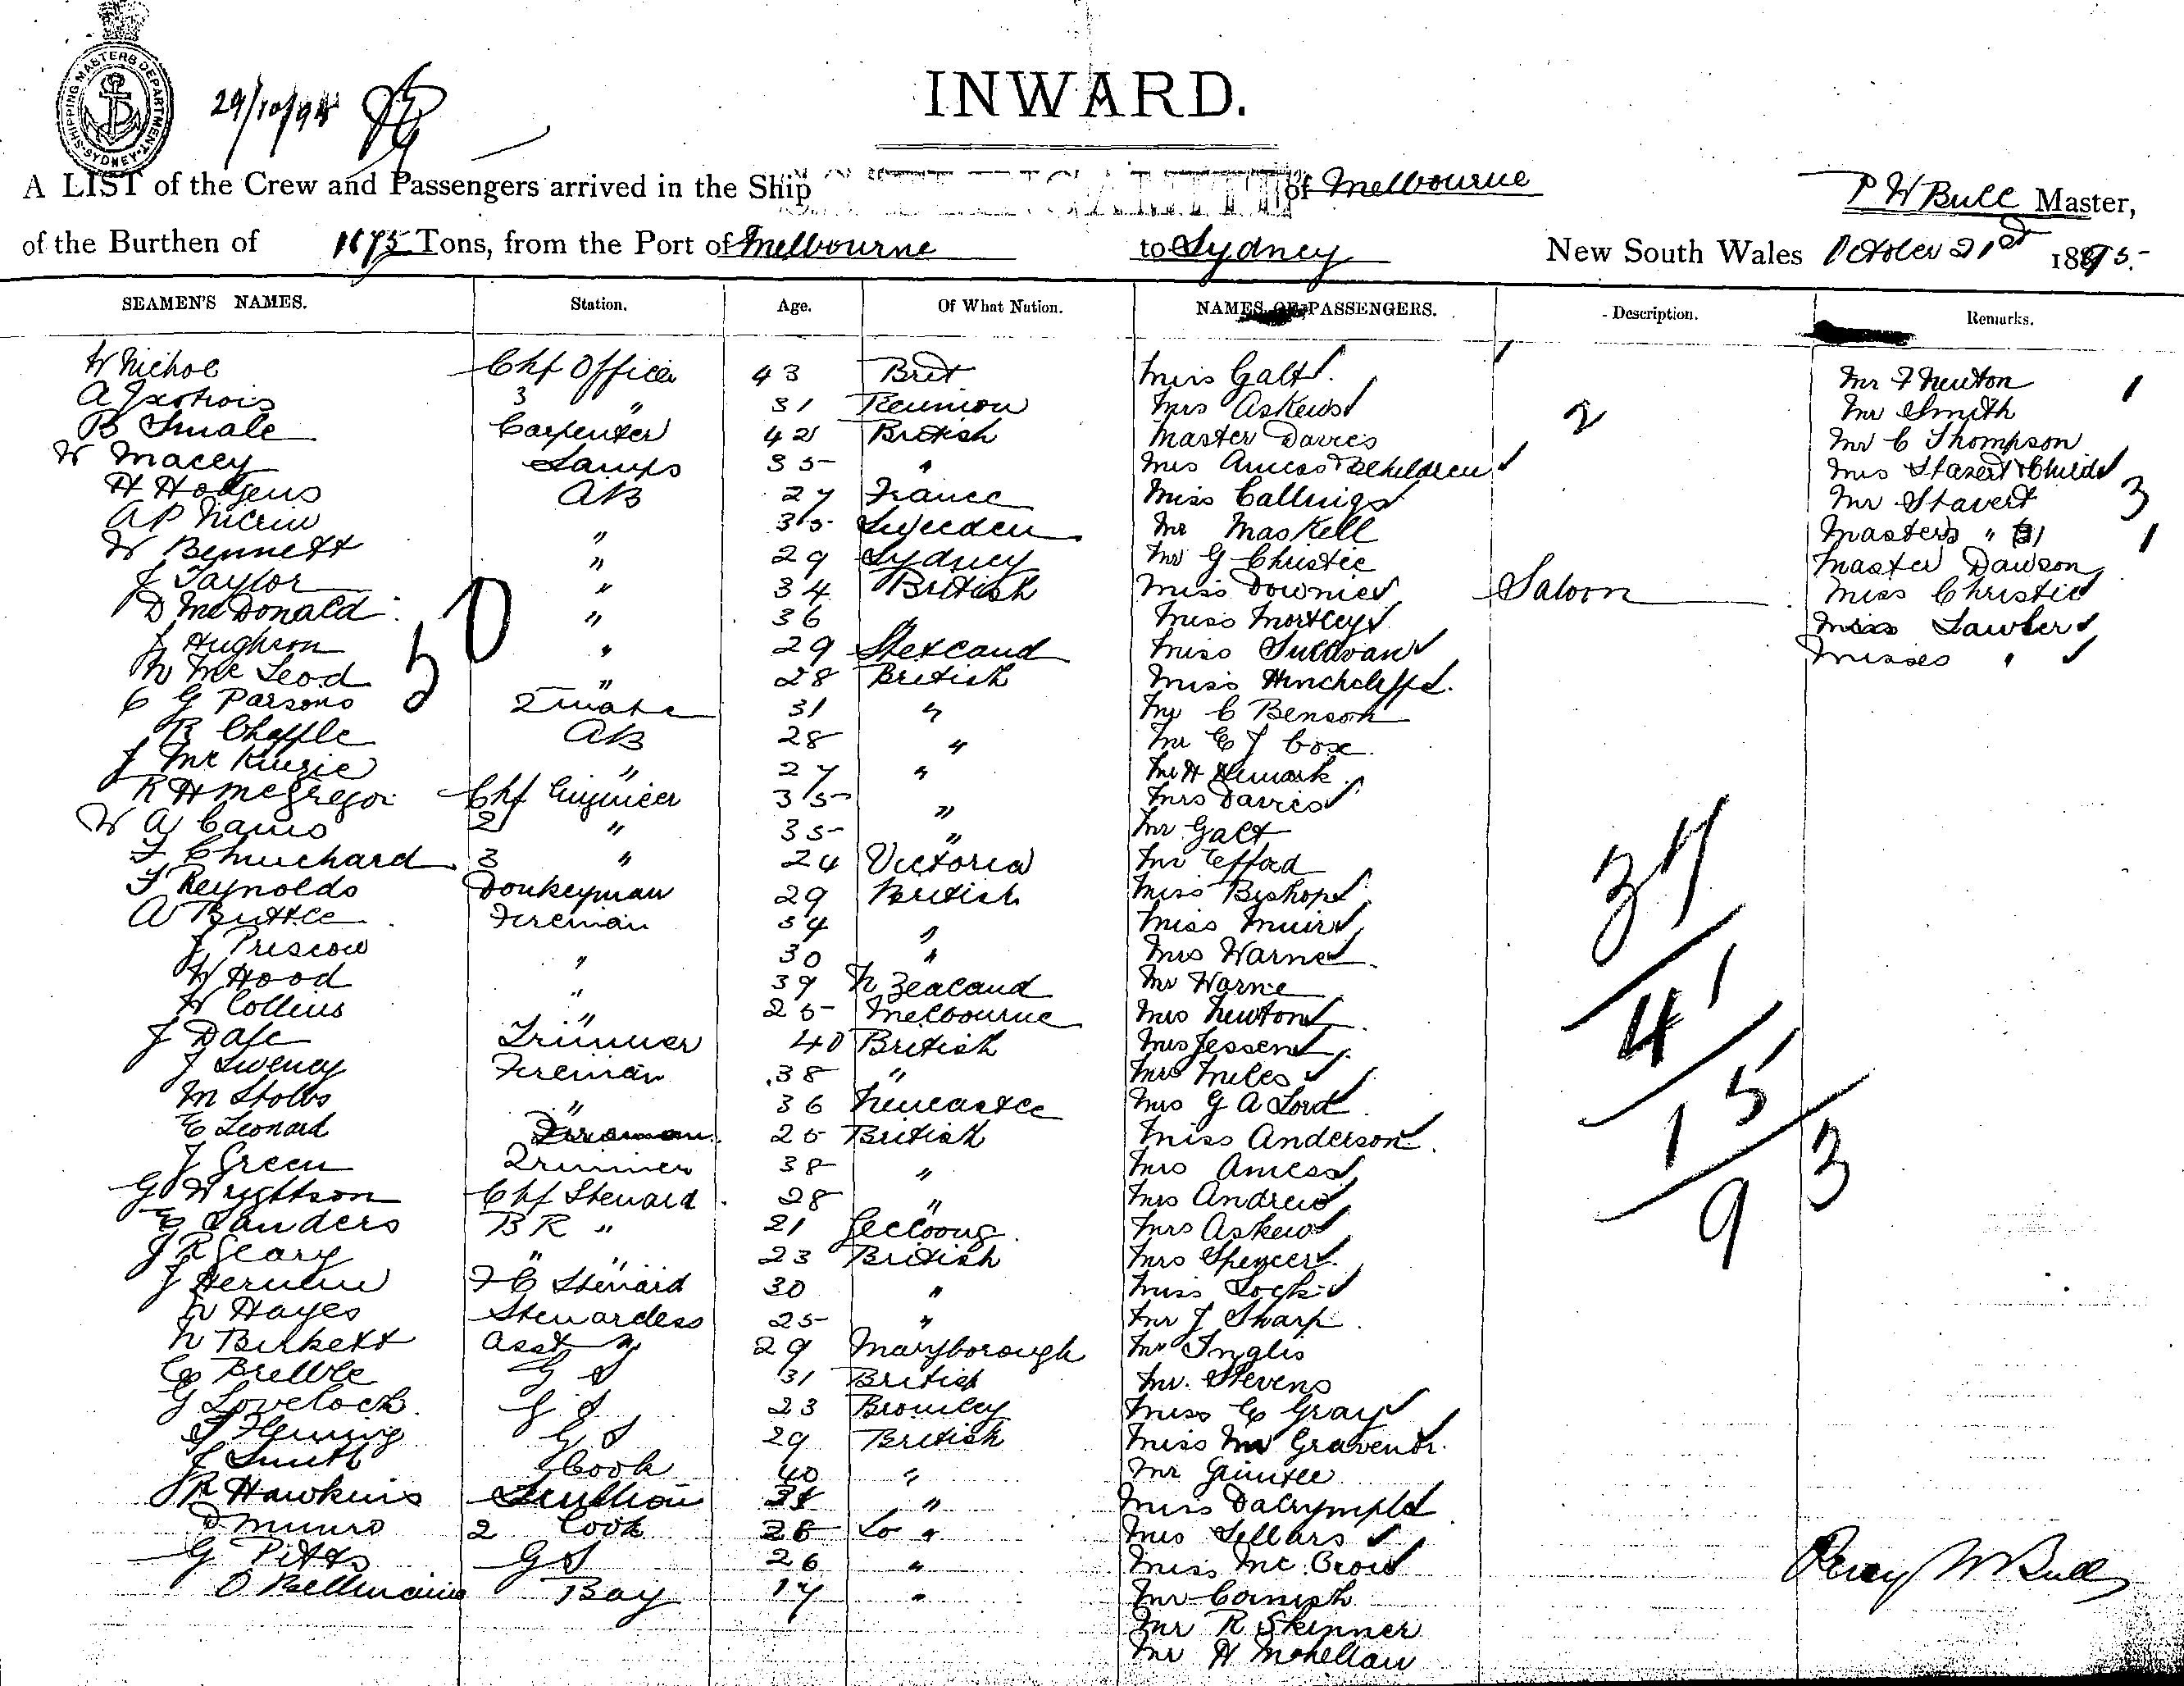 SHIPPING MASTERS DEPARTMENT SYDNEY
29/10/95
INWARD.
A LIST of the Crew and Passengers arrived in the Ship of Melbourne P W Bull Master,
of the Burthen of 1675 Tons, from the Port of Melbourne to Sydney New South Wales October 21st 1895.
SEAMEN'S NAMES. Station. Age. Of What Nation. NAMES OF PASSENGERS. Description. Remarks.
W Nichol Chf Officer 43 Brit Miss Galt Mr F Newton 1
3 " 31 Reunion Mrs Askew 2 Mr Smith
B Smale Carpenter 42 British Master Davies Mr C Thompson
W Macey Lamps 35 " Mrs Amess & children Mrs Stavert & Child
H Hodgens AB 27 France Miss Callings Mr Stavert 3
A P " 35 Sweeden Mr Maskell Masters " 1
W Bennett " 29 Sydney Mr G Christie Master Dawson
J Taylor " 34 British Miss Downie Saloon Miss Christie
D McDonald " 36 " Miss Mortley Lawler
J Hughson " 29 Shetland Miss Sullivan Misses "
N McLeod 50 " 28 British Miss Hinchcliffe
C G Parsons 2 Mate 31 " Mr C Benson
R Chapple AB 28 " Mr E J Cox
J McKinzie " 27 " Mr H Newark
R H McGregor Chf Engineer 35 " Mrs Davies
W A Cairns 2 " 35 " Mr Galt
F Chuchard 3 " 24 Victoria Mr Efford 37
F Reynolds Donkeyman 29 British Miss Bishop
A Buttle Fireman 34 " Miss Muir
J Priscow " 30 " Mrs Warne
W Hood " 39 N Zealand Mr Warne
W Collins " 25 Melbourne Mrs Newton 41
J Dale Trimmer 40 British Mrs Jessen
J Sweney Fireman 38 " Mrs Miles
M Stobbs " 36 Newcastle Mrs G A Lord 15
E Leonard Fireman 25 British Miss Anderson
J Green Trimmer 38 " Mrs Amess 3
G Wrightson Chf Steward 28 " Mrs Andrew 9
E Sanders B R " 21 Geelong Mrs Askew
J R Geary " " 23 British Mrs Spencer
J F C Steward 30 " Miss Lock
N Hayes Stewardess 25 " Mr J Sharp
N Birkett Asst " 29 Maryborough Mr Inglis
C G S 31 British Mr. Stevens
G Lovelock G S 23 Bromley Miss E Gray
J Fleming G S 29 British Miss M Gravenor
J Smith Cook 40 " Mr
R Hawkins Scullion " Miss Dalrymple
D Munro 2 Cook 28 " Mrs Sellars
G Pitts G S 26 " Miss McCrow
Boy 17 " Mr Cornish
Mr R Skinner
Mr H McKellar
Percy W Bull